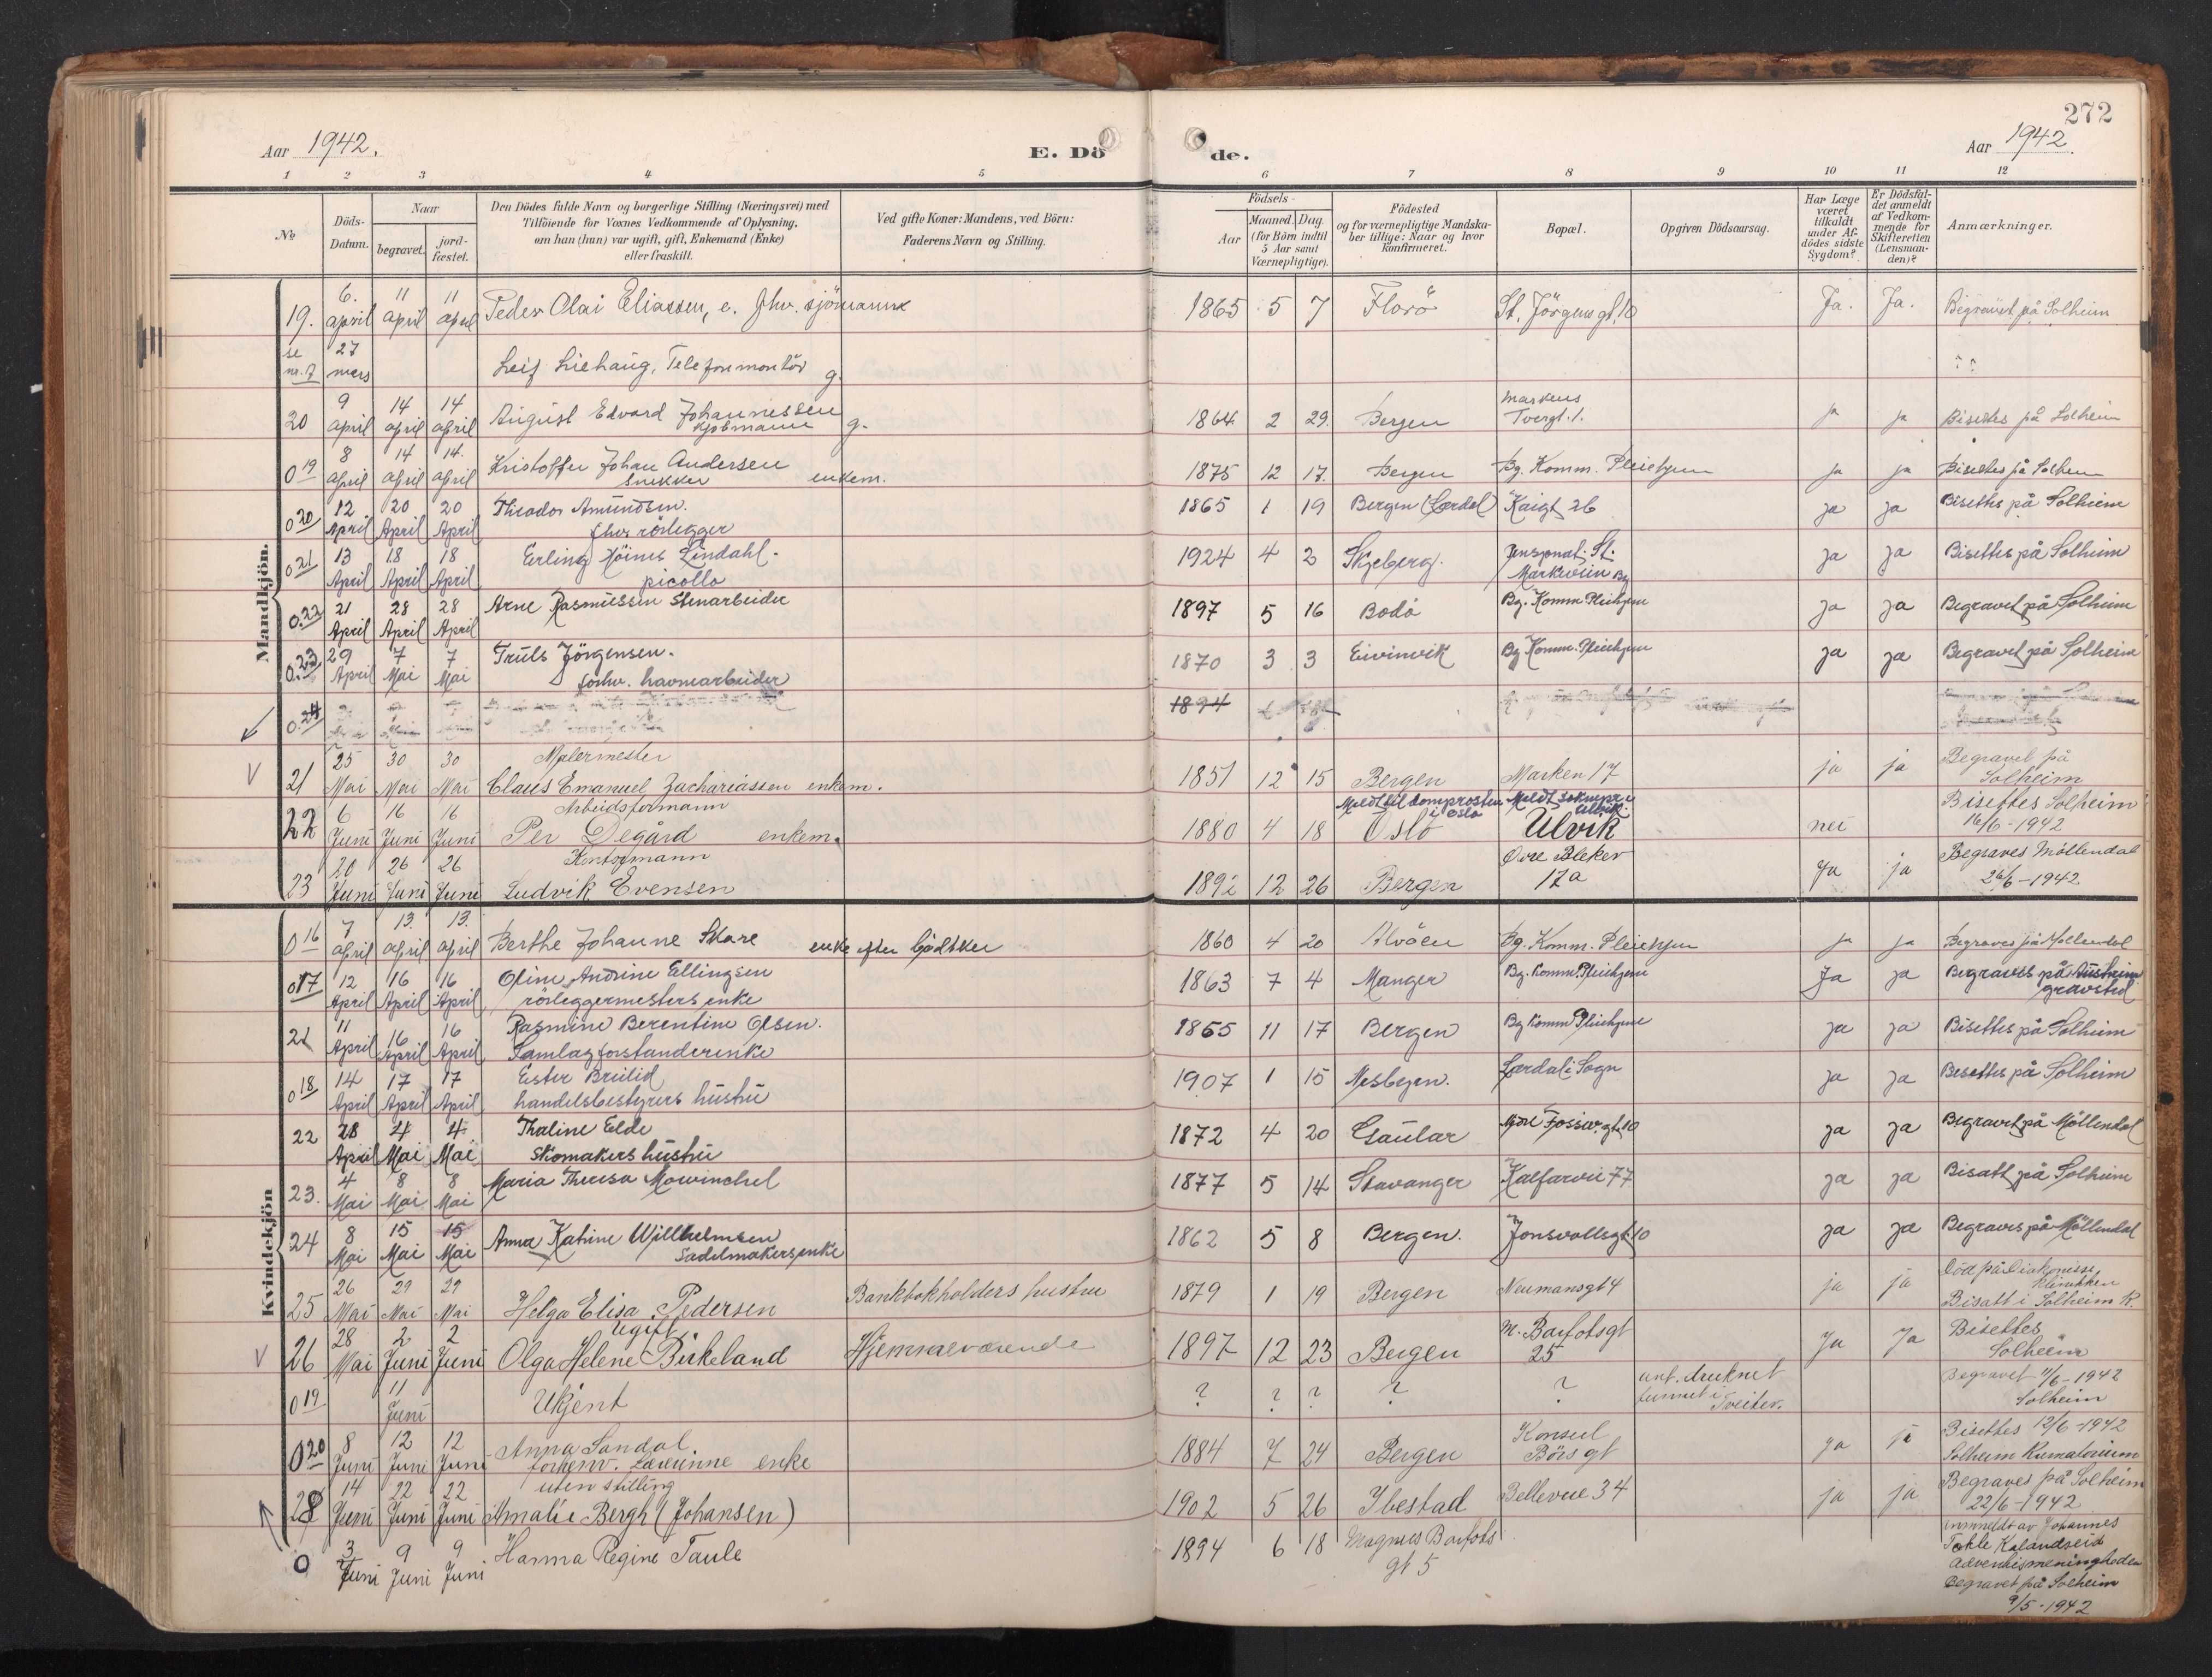 272
Aar 1942.
E. Dö de.
Aar 1942.
1 2 3 4 5 6 7 8 9 10 11 12
No.
Döds-Datum.
Naar
begravet.
jord-fæstet.
Den Dödes fulde Navn og borgerlige Stilling (Næringsvei) med
Tilföiende for Voxnes Vedkommende af Oplysning,
om han (hun) var ugift, gift, Enkemand (Enke)
eller fraskilt.
Ved gifte Koner: Mandens, ved Börn:
Faderens Navn og Stilling.
Födsels-
Aar
Maaned. Dag.
(for Börn indtil
5 Aar samt
Værnepligtige).
Födested
og for værnepligtige Mandska-
ber tillige: Naar og hvor
konfirmeret.
Bopæl.
Opgiven Dödsaarsag.
Har Læge
været
tilkaldt
under Af-
dödes sidste
Sygdom?
Er Dödsfal-
det anmeldt
af Vedkom-
mende for
Skifteretten
(Lensman-
den)?
Anmærkninger.
Mandkjön.
19. 6. april 11 april 11 april Peder Olai Eliassen, e. fhv. sjömann 1865 5 7 Florö St. Jörgens gt. 10 Ja. Ja. Begravet på Solheim
se nr. 7 27 mars Leif Liehaug, Telefonmontör g.
20 9 april 14 april 14 april August Edvard Johannessen
Kjöbmann g. 1864 2 29. Bergen Markens
Tvergt. 1. ja ja Bisettes på Solheim
0 19 8 april 14 april 14. april Kristoffer Johan Andersen
Snekker enkem. 1875 12 17. Bergen Bg. Komm. Pleiehjem ja ja Bisettes på Solheim
0 20 12 April 20 April 20 April Theodor Amundsen.
fhv. rörlegger 1865 1 19 Bergen (Lærdal) Kaigt 26 ja ja Bisettes på Solheim
0 21 13 April 18 April 18 April Erling Lindahl.
picollo 1924 4 2 Skjeberg. St.
Markveien Bg ja ja Bisettes på Solheim
0.22 21 April 28 April 28 April Arne Rasmussen Stenarbeider 1897 5 16 Bodö Bg. Komm. Pleiehjem ja ja Begravet på Solheim
0.23 29 April 7 Mai 7 Mai Truls Jörgensen.
forhv. havnearbeider 1870 3 3 Eivinvik Bg Komm. Pleiehjem ja ja Begravet på Solheim
0.24 1894
21 25 Mai 30 Mai 30 Mai Malermester
Claus Emanuel Zachariassen enkem. 1851 12 15 Bergen Marken 17 ja ja Begravet på
Solheim
22 6 Juni 16 Juni 16 Juni Arbeidsformann
Per Degård enkem. 1880 4 18 Meldt til domprosten
i Oslo
Oslo Meldt sokнepr. i
Ulvik.
Ulvik nei Bisettes Solheim
16/6-1942
23 20 Juni 26 Juni 26 Juni Kontormann
Ludvik Evensen 1892 12 26 Bergen Övre Bleker
17a Ja ja Begraves Möllendal
26/6-1942
Kvindekjön
0 16 7 april 13. april 13. april Berthe Johanne Skare enke efter bödtker 1860 4 20 Alvöen Bg. Komm. Pleiehjem ja ja Begraves på Möllendal
0 17 12 April 16 April 16 April Oline Andrine Ellingsen
rörleggermesters enke 1863 7 4 Manger Bg. Komm. Pleiehjem Ja ja Begraves på Austrheim
gravsted
21 11 April 16 April 16 April Rasmine Berentine Olsen.
Samlagforstanderenke 1865 11 17 Bergen Bg Komm Pleiehjem ja ja Bisettes på Solheim
0 18 14 April 17 April 17 April Ester Breilid
handelsbestyrers hustru 1907 1 15 Nesbyen. Lærdal i Sogn ja ja Bisettes på Solheim
22 28 April 4 Mai 4 Mai Thaline Elde
Skomakers hustru 1872 4 20 Gaular gt. 10 ja ja Begravet på Möllendal
23. 4 Mai 8 Mai 8 Mai Maria Theresa Mowinckel 1877 5 14 Stavanger Kalfarvei 77 ja ja Bisatt på Solheim
24 8 Mai 15 Mai 15 Mai Anna Katrine Willhelmsen
Sadelmakers enke 1862 5 8 Bergen. Jonsvollsgt 10 ja ja Begraves på Möllendal
25 26 Mai 29 Mai 29 Mai Helga Elisa Pedersen Bankbokholders hustru 1879 1 19 Bergen Neumansgt 4 ja ja Död på Diakonisse
klinikken
Bisatt i Solheim K.
26 28 Mai 2 Juni 2 Juni Ugift
Olga Helene Birkeland Hjemmeværende 1897 12 23 Bergen M. Barfotsgt
25 Ja Ja Bisettes
Solheim
0 19 11 Juni Ukjent ? ? ? ? ? ant. druknet
funnet i
Tveitev. Begravet 11/6-1942
Solheim
0 20 8 Juni 12 Juni 12 Juni Anna Sandal.
forhenv. Lærerinne enke 1884 7 24 Bergen Konsul
Börs gt ja ja Bisettes 12/6-1942
Solheim Krematorium
28 14 Juni 22 Juni 22 Juni uten stilling
Amalie Bergh (Johansen) 1902 5 26 Ibestad Bellevue 34 ja ja Begraves på Solheim
22/6-1942
0 3 Juni 9 Juni 9 Juni Hanna Regine Taule 1894 6 18 Magnus Barfots
gt 5 innmeldt av Johannes
Tokle Kalandseid
Adventistmenigheden
Begravet på Solheim
9/5-1942